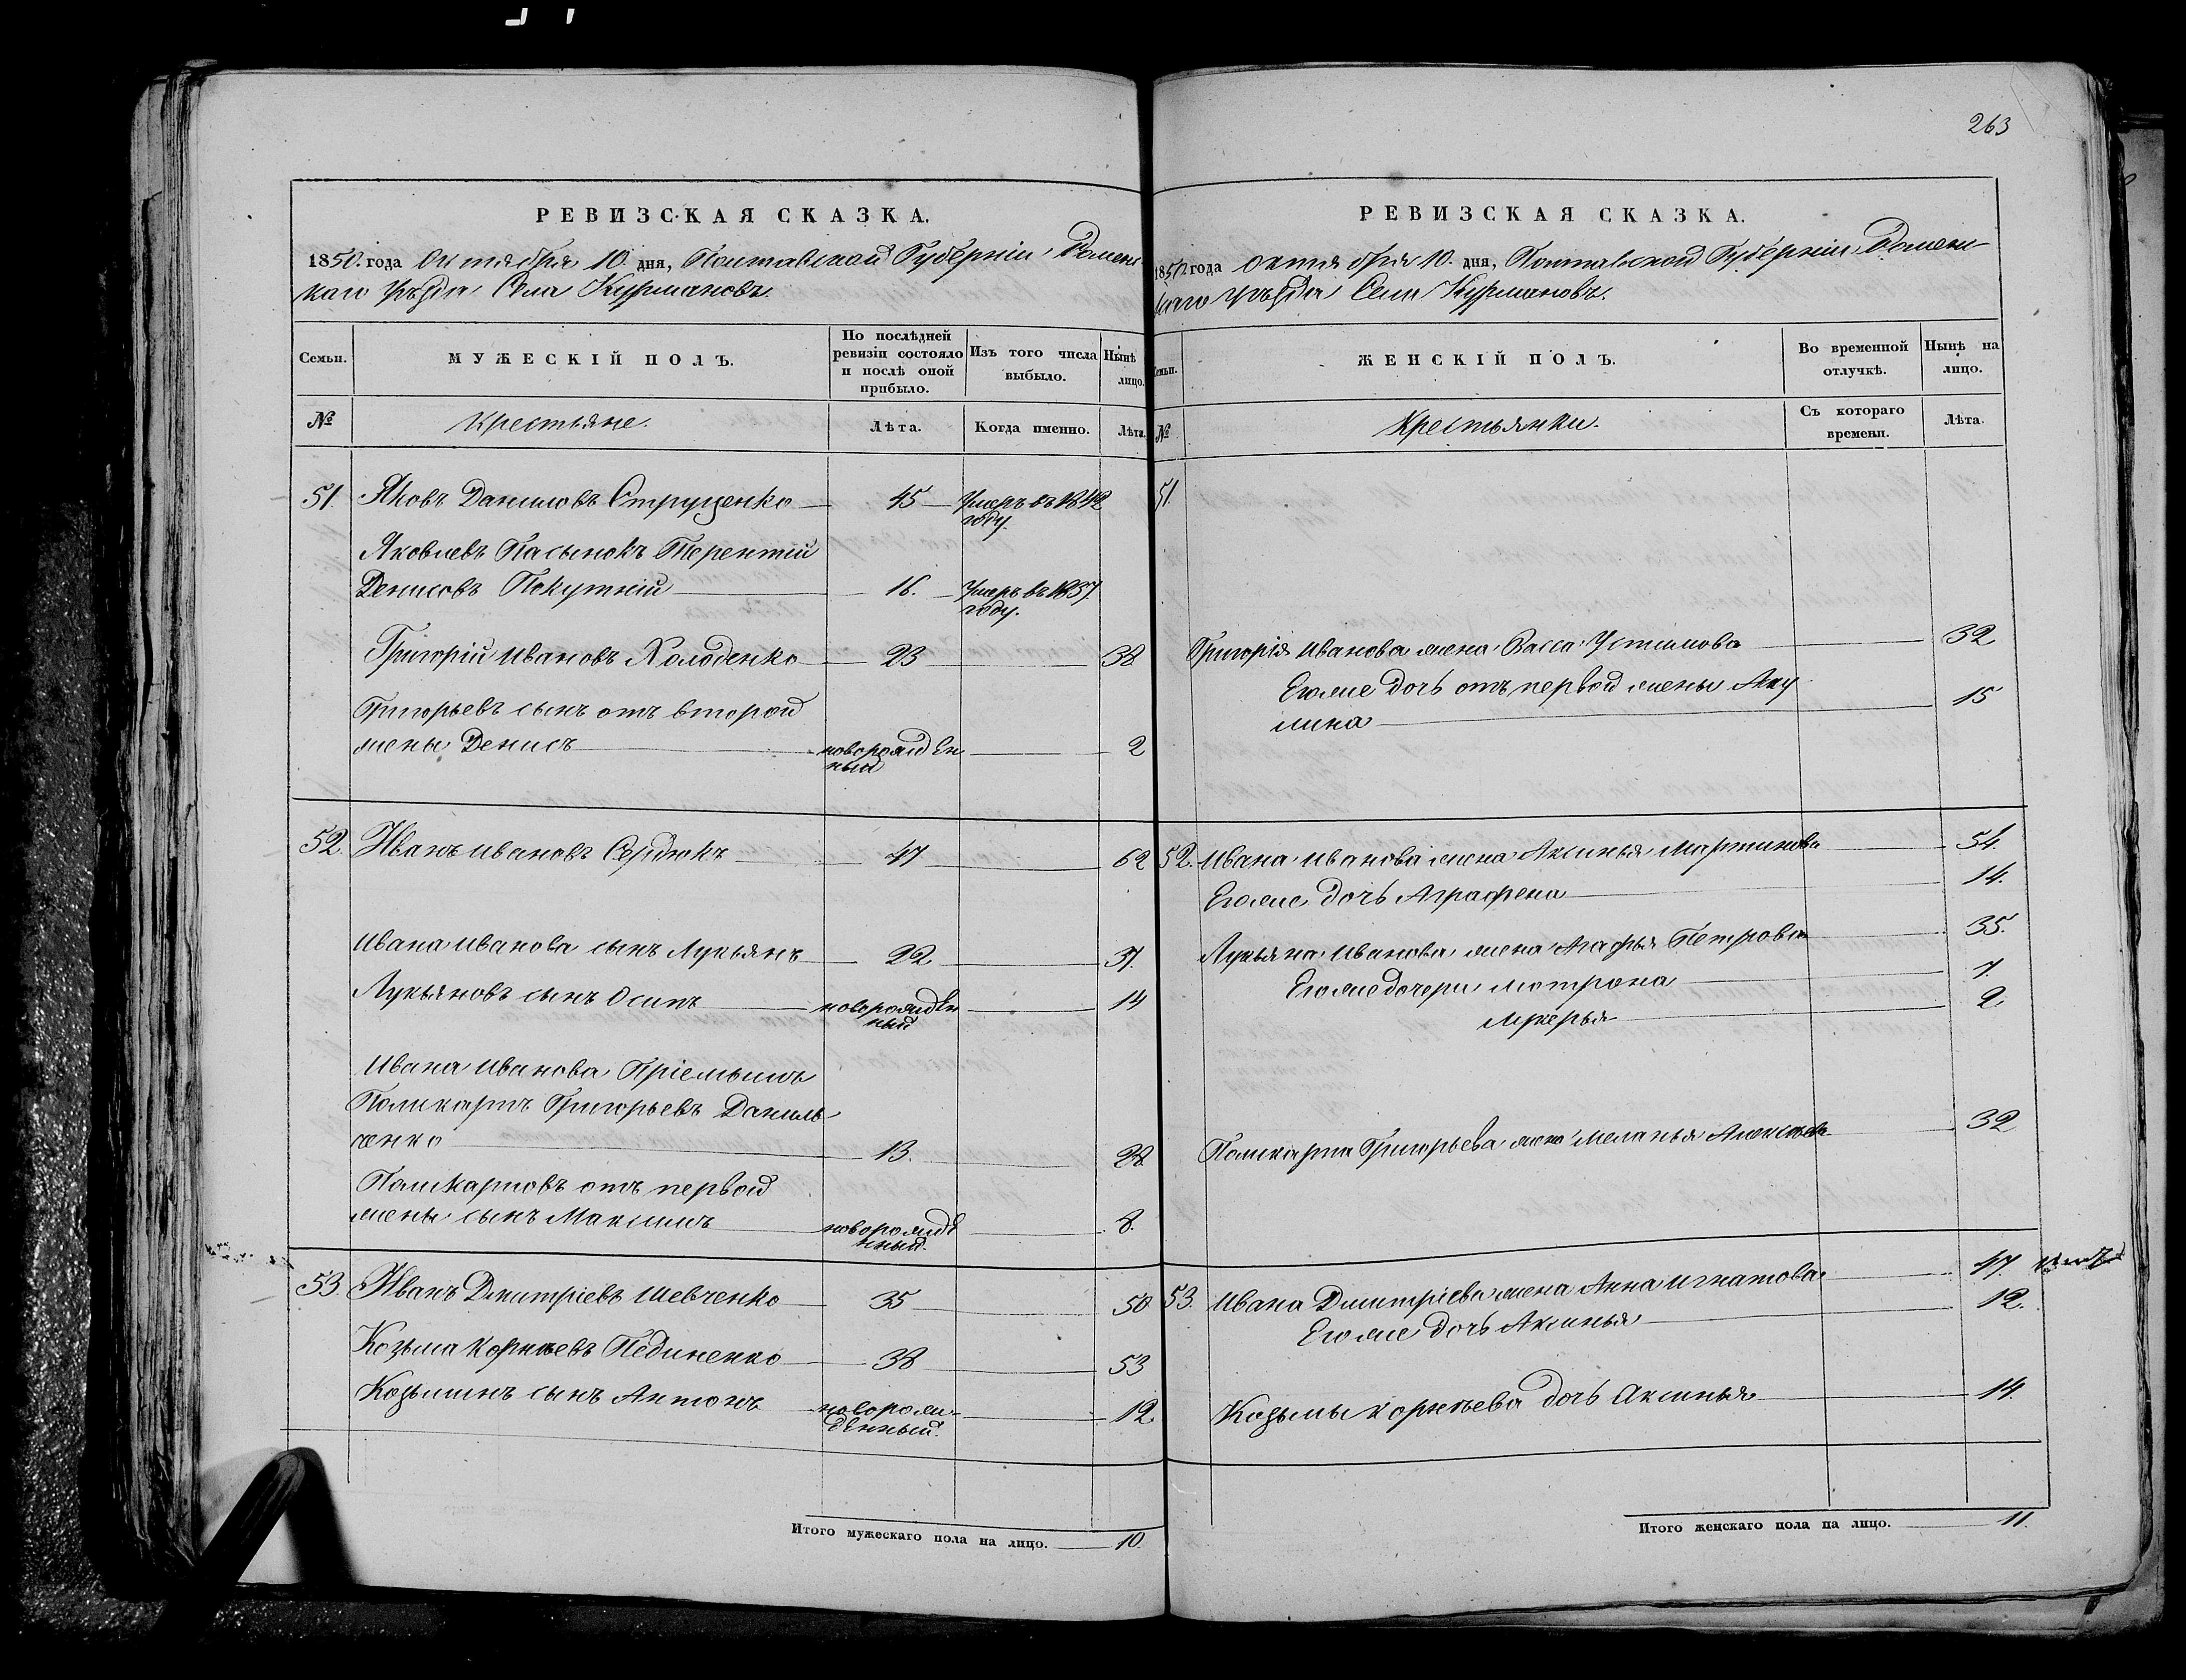 263
РЕВИЗСКАЯ СКАЗКА.
1850. года Октября 10. дня, Полтавской Губерніи, Ромен
скаго Уѣзда Села Курмановъ.
Семьи.
МУЖЕСКІЙ ПОЛЪ.
По послѣдней
ревизіи состояло
и послѣ оной
прибыло.
Изъ того числа
выбыло.
Нынѣ
лицо.
№
Крестьяне.
Лѣта.
Когда именно.
Лѣта.
51. Яковъ Даниловъ Струценко 45 Умеръ въ 1842
году.
Яковлевъ Пасынокъ Терентій
Денисовъ Покутній 16. Умеръ въ 1837.
году.
Григорій Ивановъ Холоденко 23 38
Григорьевъ сынъ отъ второй
жены Денисъ новорожден 2
ный
52. Иванъ Ивановъ Сердюкъ 47 62
Ивана Иванова сынъ Лукьянъ 22 37.
Лукьяновъ сынъ Осипъ новорожден 14
ный
Ивана Иванова Пріемышъ
Поликарпъ Григорьевъ Даниль
ченко 13. 28
Поликарповъ отъ первой
жены сынъ Максимъ новорожде 8.
нный.
53. Иванъ Дмитріевъ Шевченко 35 50
Козьма Корнѣевъ Пединенко 38 53
Козьминъ сынъ Антонъ новорож- 12.
денный.
Итого мужескаго пола на лицо. 10.
РЕВИЗСКАЯ СКАЗКА.
1850. года Октября 10. дня, Полтавской Губерніи, Ромен
скаго Уѣзда Села Курмановъ.
Семьи.
ЖЕНСКІЙ ПОЛЪ.
Во временной
отлучкѣ.
Нынѣ на
лицо.
№
Крестьянки.
Съ котораго
времени.
Лѣта.
51.
Григорія Иванова жена Васса Устимова 32
Его же дочь отъ первой жены Аку
лина 15
52. Ивана Иванова жена Аксинья Мартинова 54.
Его же дочь Аграфена 14.
Лукьяна Иванова жена Агафья Петрова 35.
Его же дочери Мотрона 7.
Лукерья 2
Поликарпа Григорьева жена Меланья Алексѣева 32
53. Ивана Дмитріева жена Анна Игнатова 47.
Его же дочь Аксинья 12.
Козьмы Корнѣева дочь Аксинья 14.
Итого женскаго пола на лицо. 11.